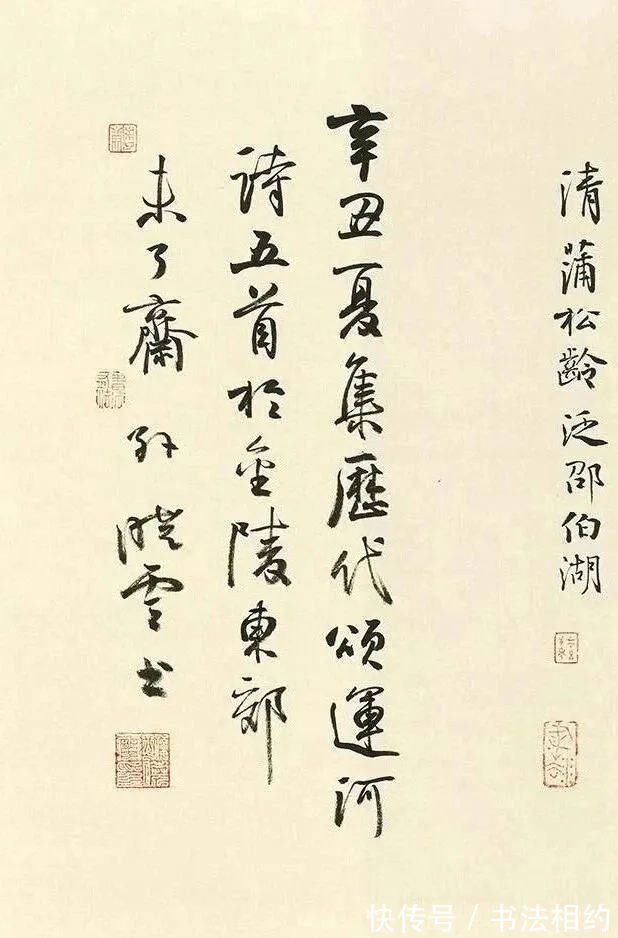 清蒲松齡泛邵伯湖
辛丑夏集歷代頌運河
詩五首於金陵東郊
未了齋孫曉雲書
快传号 / 书法相约